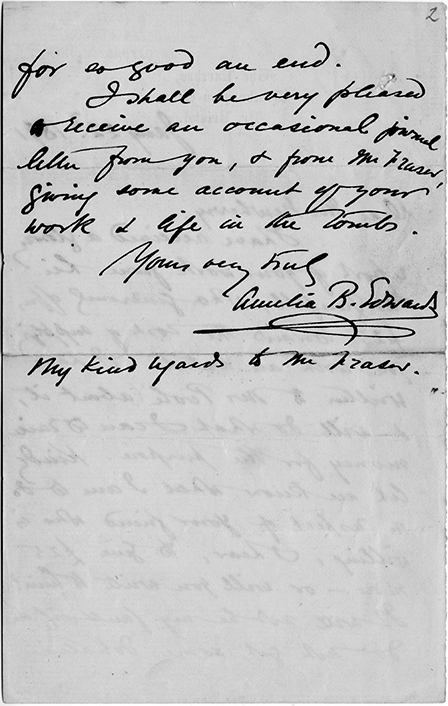 2
for so good an end.
I shall be very pleased
to receive an occasional journal
letter from you, & from Mr Fraser,
giving some account of your
work & life in the Tombs.
Yours very truly
Amelia B. Edwards
My kind regards to Mr Fraser.